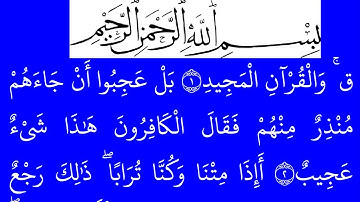 بِسْمِ ٱللَّهِ ٱلرَّحْمَٰنِ ٱلرَّحِيمِ
قۤ ۚ وَالْقُرْآنِ الْمَجِيدِ ١ بَلْ عَجِبُوا أَنْ جَاءَهُمْ
مُنْذِرٌ مِنْهُمْ فَقَالَ الْكَافِرُونَ هَـٰذَا شَيْءٌ
عَجِيبٌ ٢ أَإِذَا مِتْنَا وَكُنَّا تُرَابًا ۖ ذَٰلِكَ رَجْعٌ